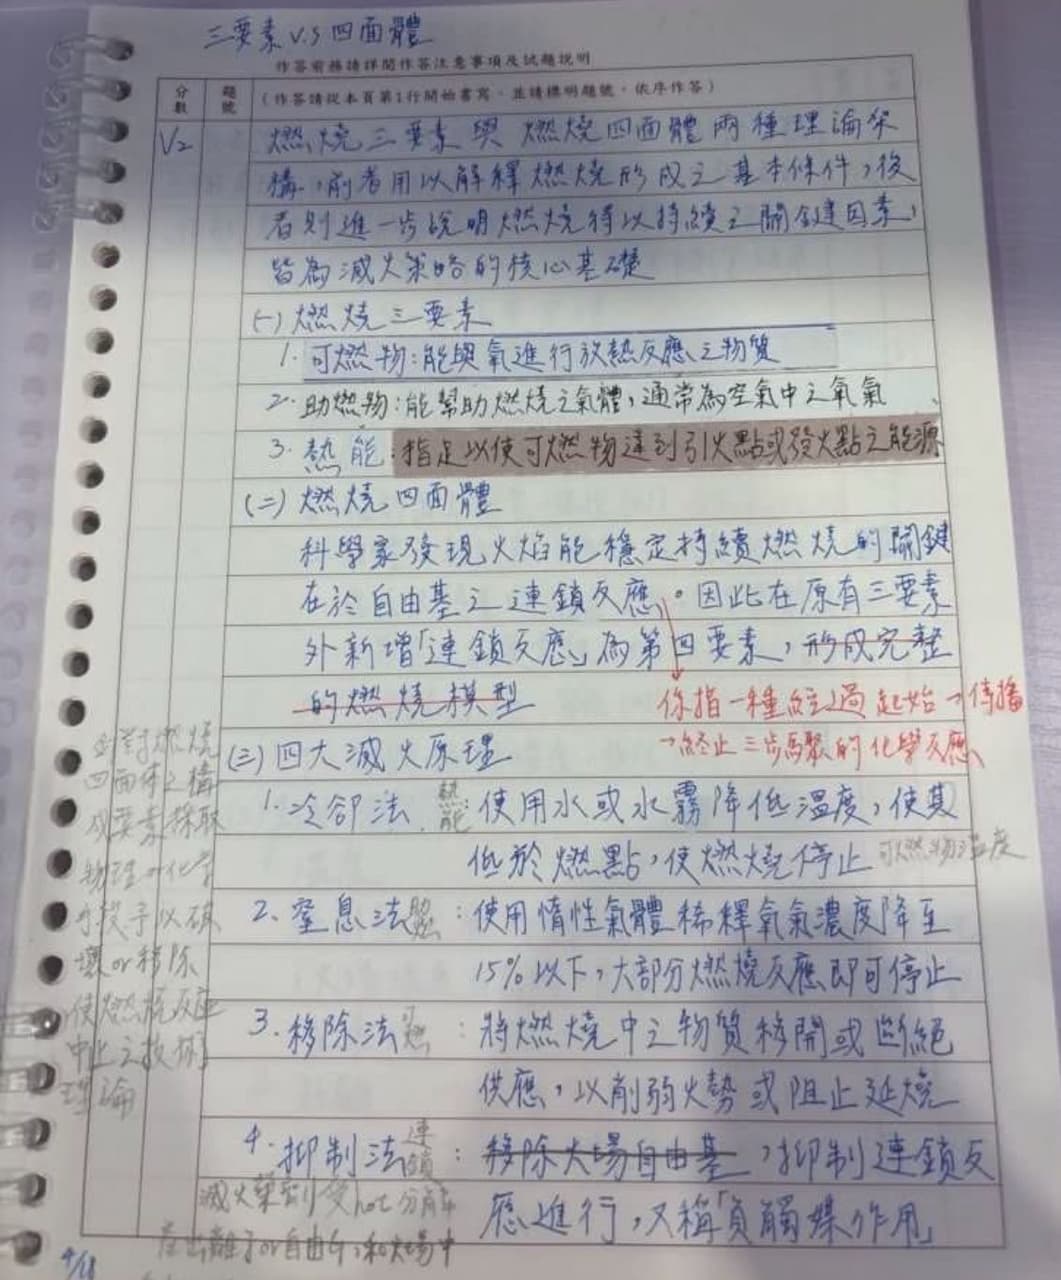 三要素 V.S 四面體
作答前務請詳閱作答注意事項及試題說明
分數
題號
(作答請從本頁第1行開始書寫，並請標明題號，依序作答)
V2
燃燒三要素與燃燒四面體兩種理論架
構，前者用以解釋燃燒形成之基本條件，後
者則進一步說明燃燒得以持續之關鍵因素，
皆為滅火策略的核心基礎
(一)燃燒三要素
1. 可燃物：能與氧進行放熱反應之物質
2. 助燃物：能幫助燃燒之氣體，通常為空氣中之氧氣
3. 熱能：指足以使可燃物達到引火點或發火點之能源
(二)燃燒四面體
科學家發現火焰能穩定持續燃燒的關鍵
在於自由基之連鎖反應。因此在原有三要素
外新增「連鎖反應」為第四要素，形成完整
的燃燒模型
係指一種經過起始→傳播
→終止三步驟的化學反應
(三)四大滅火原理
針對燃燒
四面体之構
成要素採取
物理or化学
手段予以破
壞or移除
，使燃燒反應
中止之技術
理論
1. 冷卻法 熱能：使用水或水霧降低溫度，使其
低於燃點，使燃燒停止 可燃物溫度
2. 窒息法 助燃：使用惰性氣體稀釋氧氣濃度降至
15%以下，大部分燃燒反應即可停止
3. 移除法 可燃：將燃燒中之物質移開或斷絕
供應，以削弱火勢或阻止延燒
4. 抑制法 連鎖：移除火場自由基，抑制連鎖反
應進行，又稱「負觸媒作用」
滅火藥劑受hot分解
產出離子or自由基，和火場中
4/11